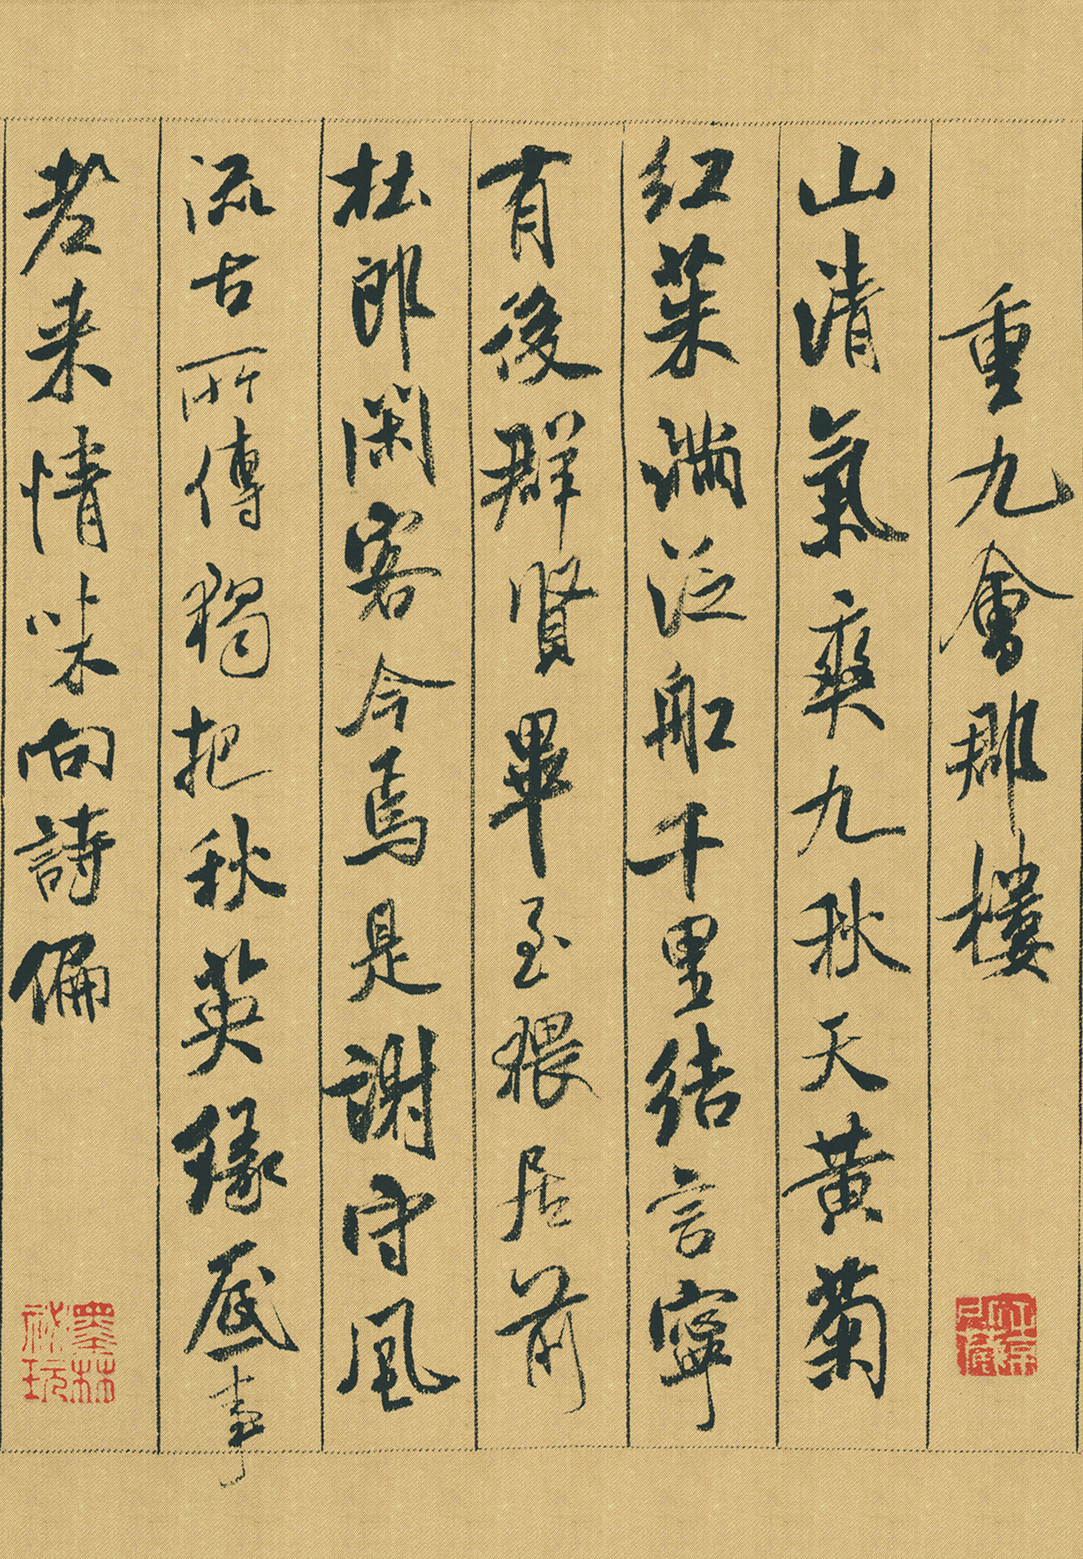 重九會郡樓
山清氣爽九秋天黃菊
紅茱滿泛船千里結言寧
有後群賢畢至猥居前
杜郎閑客今焉是謝守風
流古所傳獨把秋英緣底事
老来情味向詩偏
墨林
祕玩